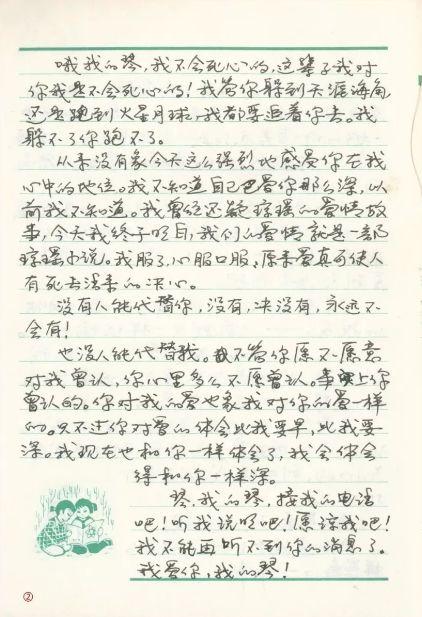 哦我的琴,我不会死心的,这辈子我对
你我是不会死心的!我管你躲到天涯海角
还是跑到火星月球,我都要追着你去。我
躲不了你跑不了。
从来没有象今天这么强烈地感受你在我
心中的地位。我不知道自己爱你那么深,以
前我不知道。我曾经还疑琼瑶的爱情故
事,今天我终于明白,我们的爱情就是一部
琼瑶小说。我服了,心服口服,原来爱真可使人
有死去活来的决心。
没有人能代替你,没有,决没有,永远不
会有!
也没人能代替我。我不管你愿不愿意
对我承认,你心里多么不愿承认。事实上你
承认的。你对我的爱也象我对你的爱一样
的。只不过你对爱的体会比我要早,比我要
深。我现在也和你一样体会了,我会体会
得和你一样深。
琴,我的琴,接我的电话
吧!听我说明吧!原谅我吧!
我不能再听不到你的消息了。
我爱你,我的琴!
②